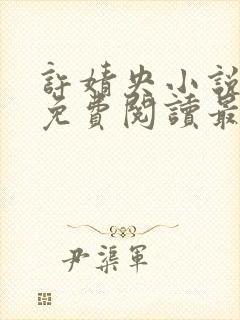 許婧央小說
免費閱讀最
尹渠軍